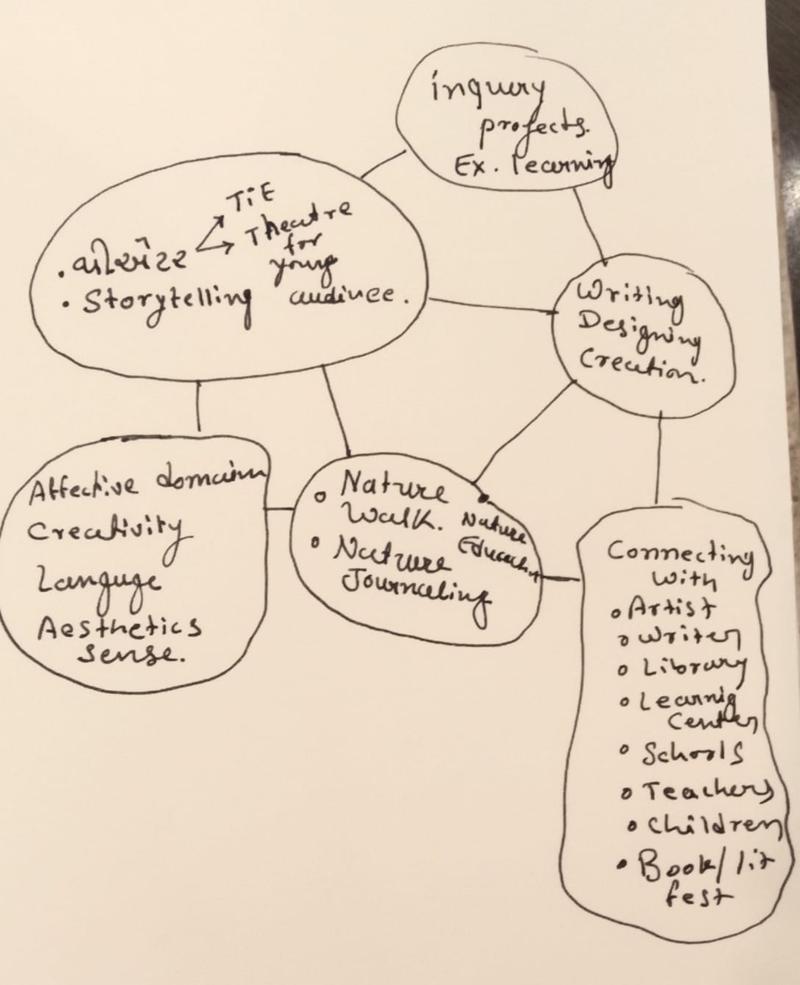 inquiry
projects.
Ex. learning
TiE
Theatre
for
young
audince.
• Storytelling
Writing
Designing
Creation.
Affective domain
Creativity
Languge
Aesthetics
sense.
Nature
Walk.
Nature
Journaling
Nature
Connecting
with
Artist
writer
Library
Learnig
Center
Schools
Teachers
children
Book/lit
fest